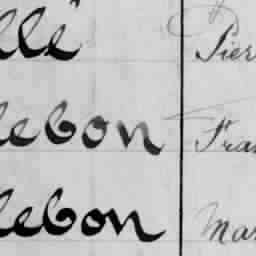 llé Pier
lebon Fran
lebon Mar